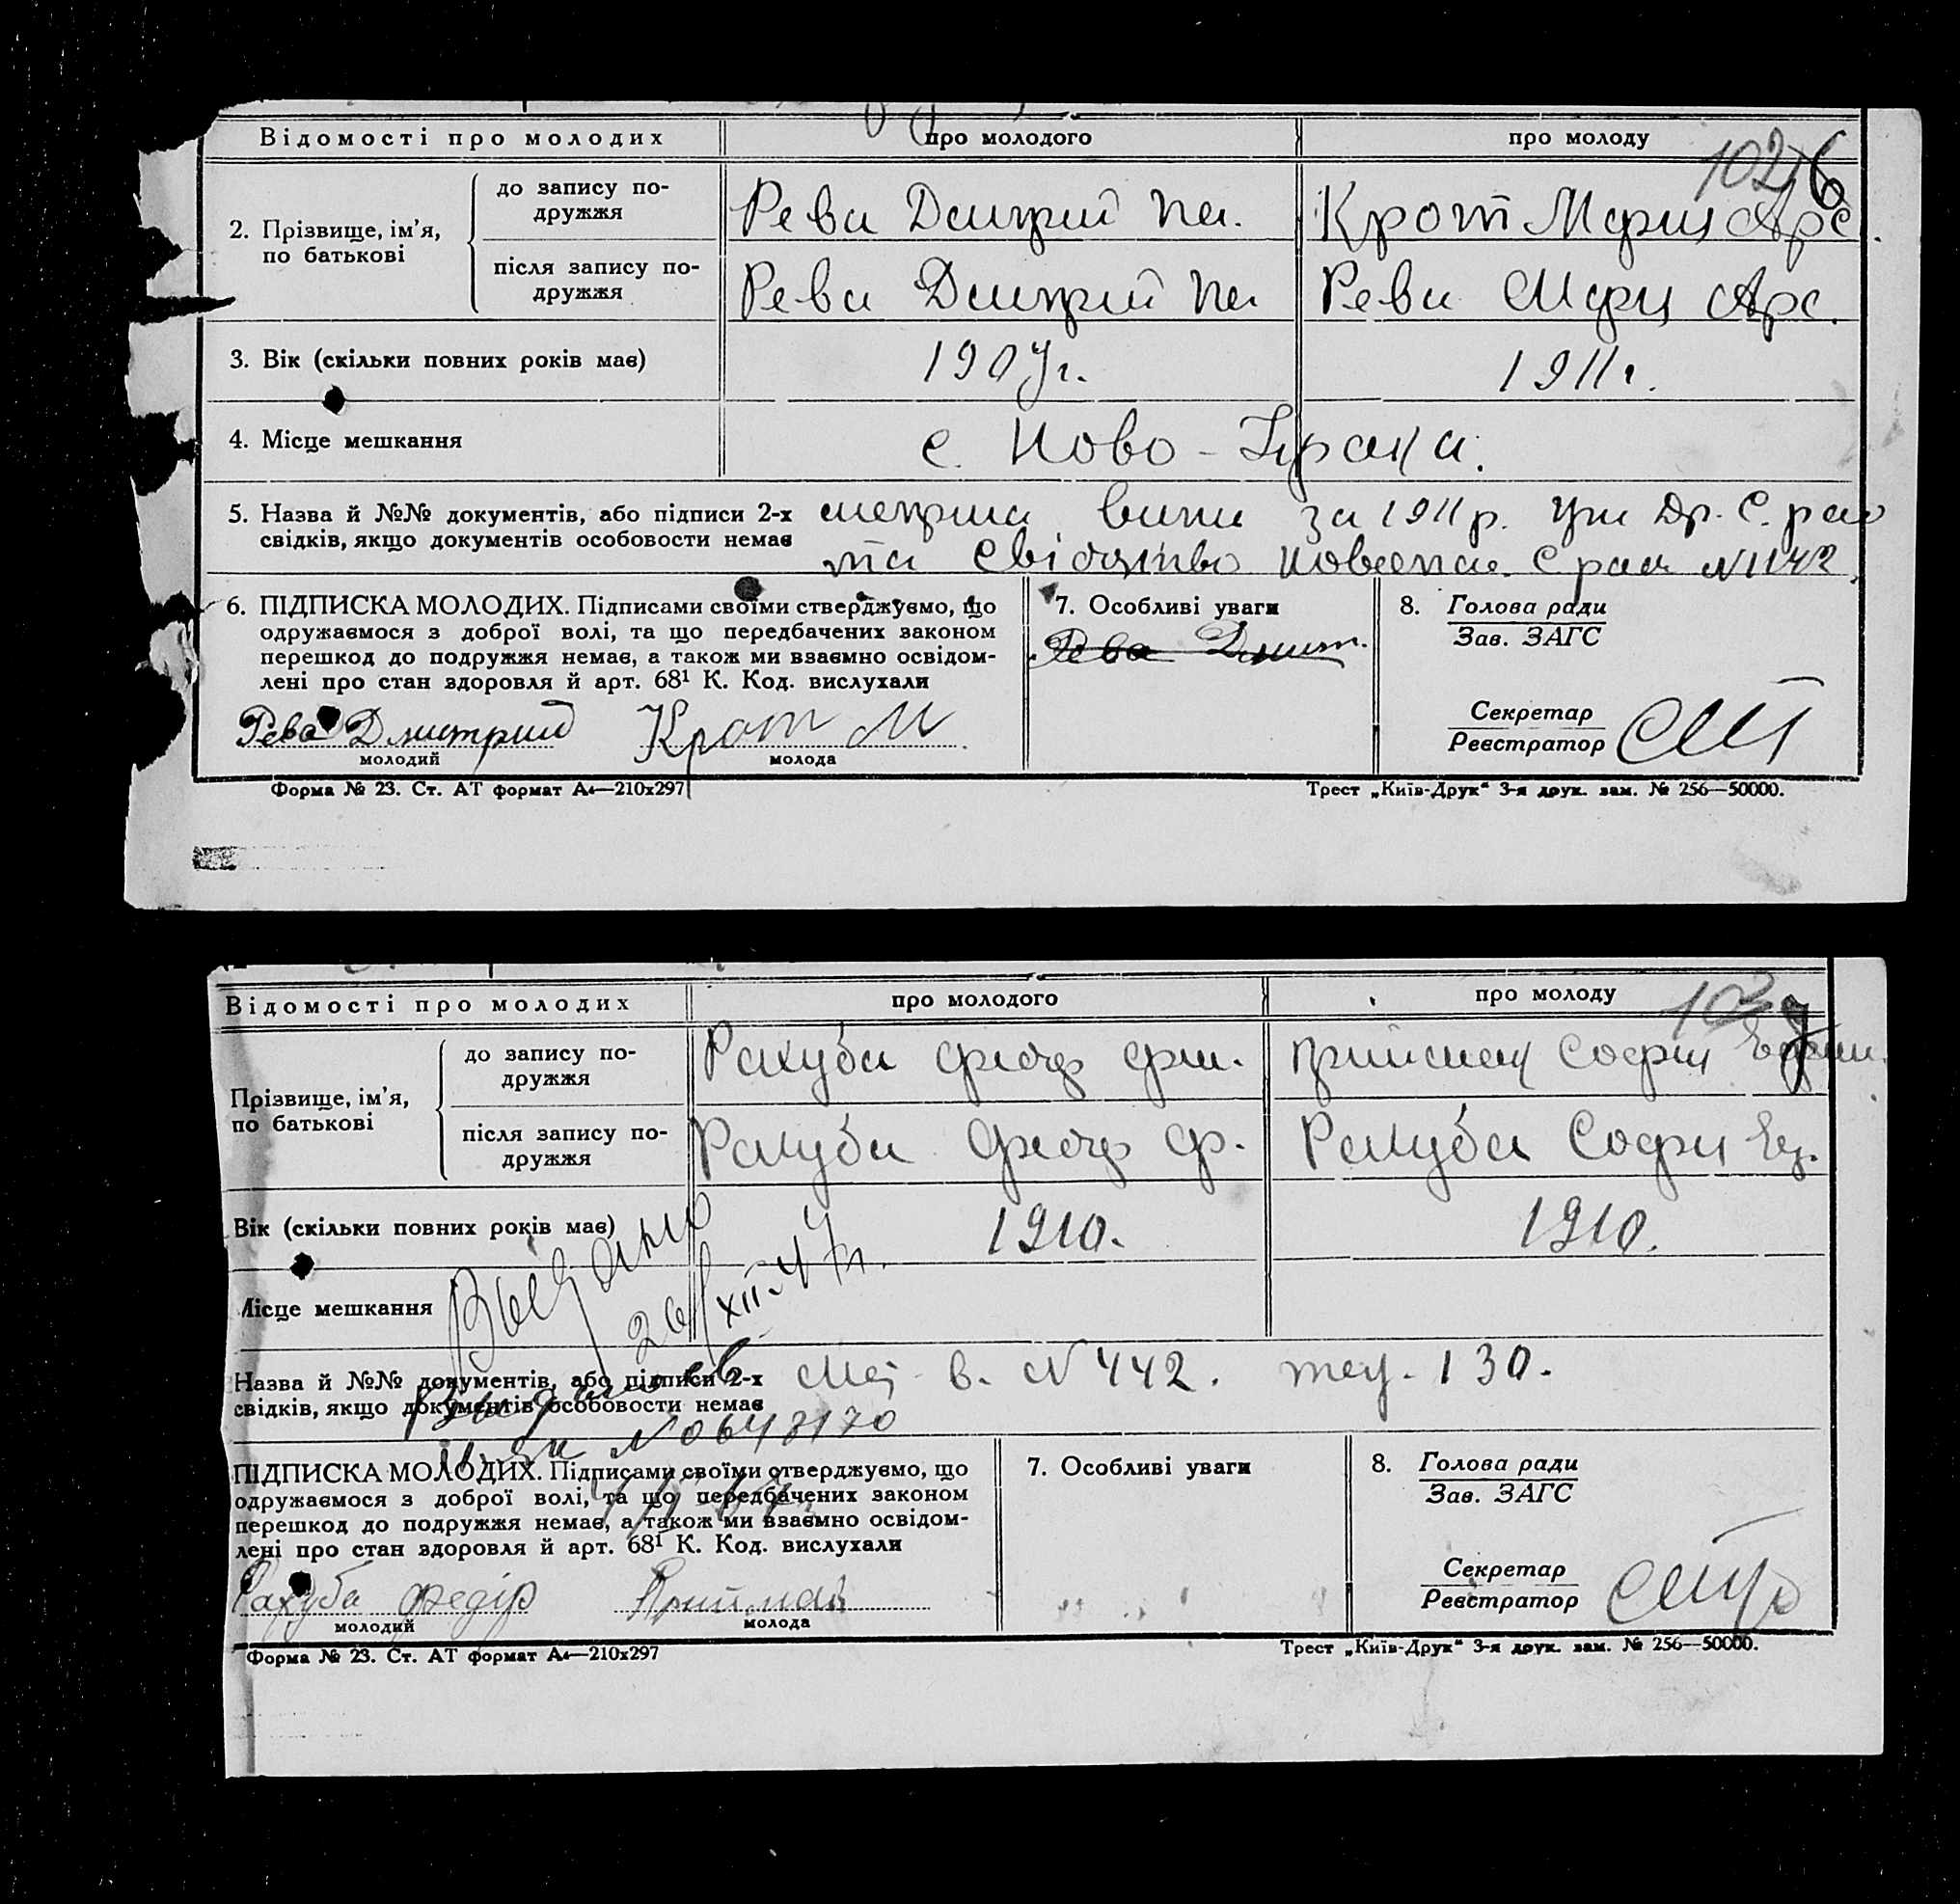 Відомості про молодих
про молодого
про молоду
102
6
2. Прізвище, ім'я, по батькові
до запису по-
дружжя
Рева Дмитрий Па.
Крот Мария Арс.
після запису по-
дружжя
Рева Дмитрий Па
Рева Мария Арс.
3. Вік (скільки повних років має)
1907г.
1911г.
4. Місце мешкання
с. Ново-
5. Назва й №№ документів, або підписи 2-х
свідків, якщо документів особовости немає
метрич випис за 1911р. при Др. С. рад
та Свідоцтво С ради №1142.
6. ПІДПИСКА МОЛОДИХ. Підписами своїми стверджуємо, що
одружаємося з доброї волі, та що передбачених законом
перешкод до подружжя немає, а також ми взаємно освідом-
лені про стан здоровля й арт. 68¹ К. Код. вислухали
Рева Дмитрий
молодий
Крот М
молода
7. Особливі уваги
Рева Дмит.
8. Голова ради
Зав. ЗАГС
Секретар
Реєстратор
Форма № 23. Ст. АТ формат А₄—210х297
Трест „Київ-Друк“ 3-я друк. зам. № 256—50000.
Відомості про молодих
про молодого
про молоду
103
7
Прізвище, ім'я,
по батькові
до запису по-
дружжя
Рахуба Федор Фи.
Приймак София
після запису по-
дружжя
Рахуба Федор Ф.
Рахуба София
Вік (скільки повних років має)
1910.
1910.
Місце мешкання
Выдано
26/XII-47г.
Назва й №№ документів, або підписи 2-х
свідків, якщо документів особовости немає
в. №442. 130.
Выдано св
№0648170
ПІДПИСКА МОЛОДИХ. Підписами своїми стверджуємо, що
одружаємося з доброї волі, та що передбачених законом
перешкод до подружжя немає, а також ми взаємно освідом-
лені про стан здоровля й арт. 68¹ К. Код. вислухали
Рахуба Федір
молодий
Приймак
молода
7. Особливі уваги
8. Голова ради
Зав. ЗАГС
Секретар
Реєстратор
Форма № 23. Ст. АТ формат А₄—210х297
Трест „Київ-Друк“ 3-я друк. зам. № 256—50000.